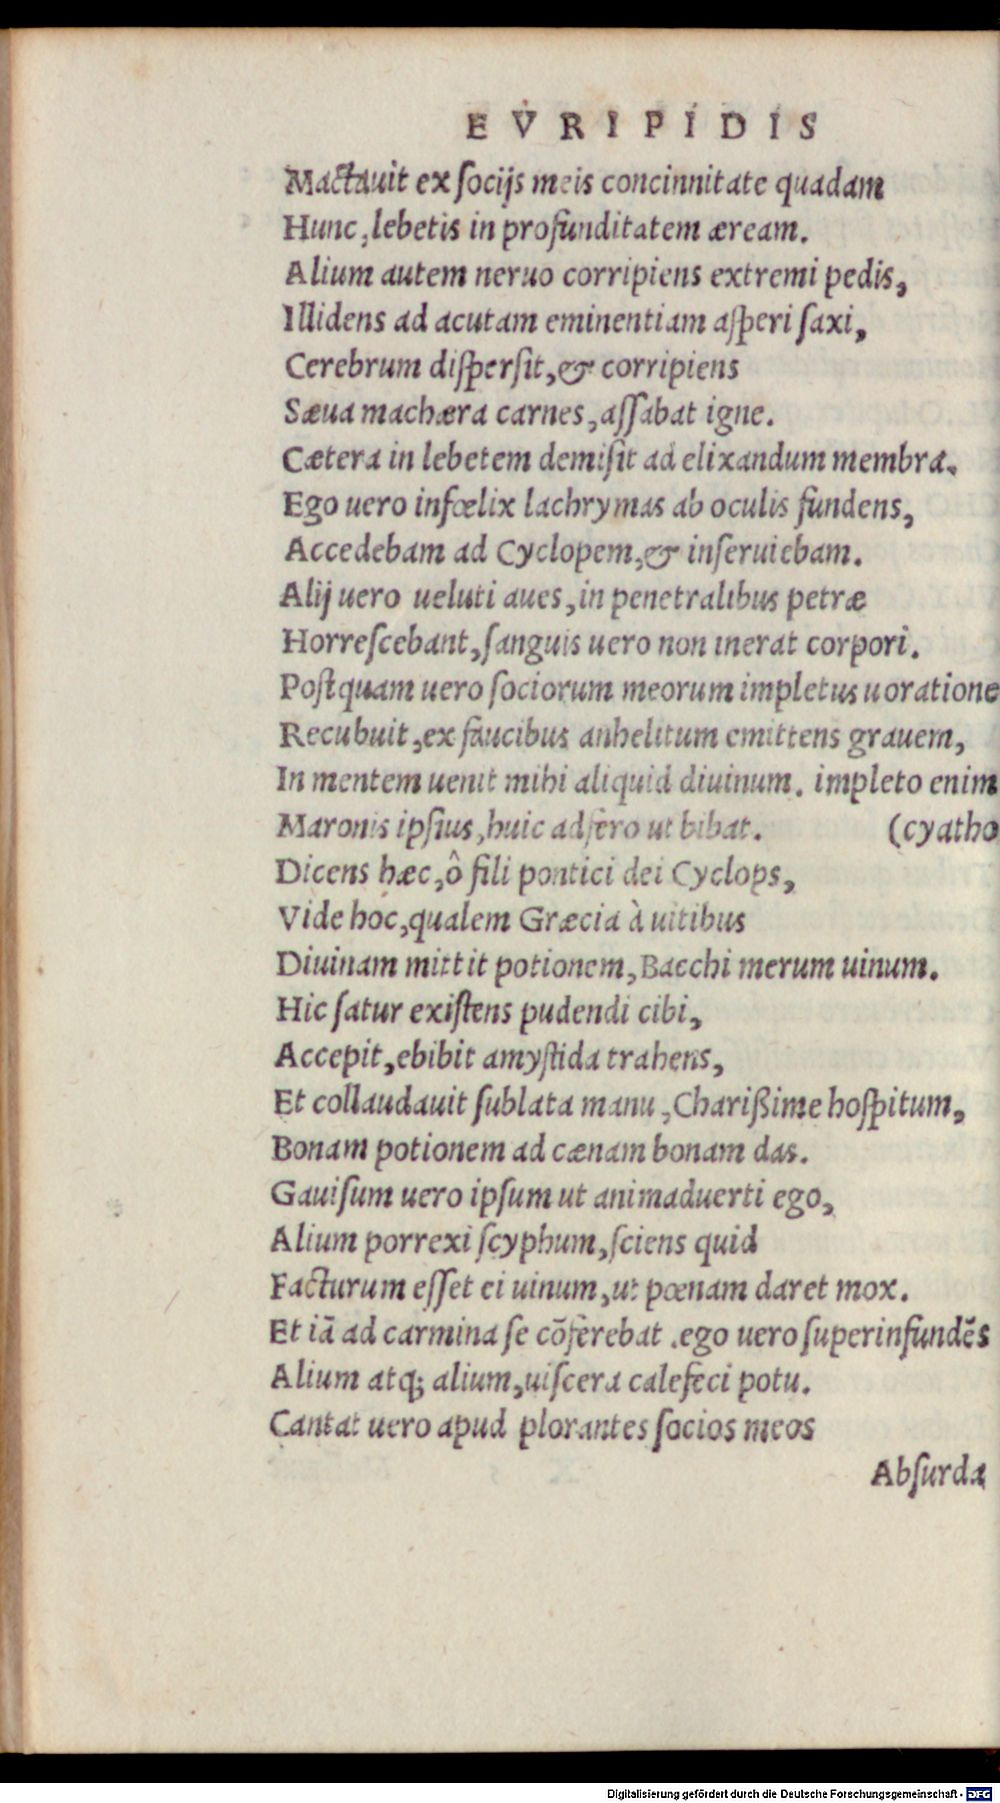 EVRIPIDIS
Mactauit ex ſocijs meis concinnitate quadam
Hunc, lebetis in profunditatem æream.
Alium autem neruo corripiens extremi pedis,
Illidens ad acutam eminentiam aſperi ſaxi,
Cerebrum diſperſit, & corripiens
Sæua machæra carnes, aſſabat igne.
Cætera in lebetem demiſit ad elixandum membra.
Ego uero infœlix lachrymas ab oculis fundens,
Accedebam ad Cyclopem, & inſeruiebam.
Alij uero ueluti aues, in penetralibus petræ
Horreſcebant, ſanguis uero non inerat corpori.
Poſtquam uero ſociorum meorum impletus uoratione
Recubuit, ex faucibus anhelitum emittens grauem,
In mentem uenit mihi aliquid diuinum. impleto enim
Maronis ipſius, huic adfero ut bibat. (cyatho
Dicens hæc, ô fili pontici dei Cyclops,
Vide hoc, qualem Græcia à uitibus
Diuinam mittit potionem, Bacchi merum uinum.
Hic ſatur exiſtens pudendi cibi,
Accepit, ebibit amyſtida trahens,
Et collaudauit ſublata manu, Charißime hoſpitum,
Bonam potionem ad cænam bonam das.
Gauiſum uero ipſum ut animaduerti ego,
Alium porrexi ſcyphum, ſciens quid
Facturum eſſet ei uinum, ut pœnam daret mox.
Et iā ad carmina ſe cōferebat. ego uero ſuperinfundēs
Alium atq; alium, uiſcera calefeci potu.
Cantat uero apud plorantes ſocios meos
Abſurda
Digitalisierung gefördert durch die Deutsche Forschungsgemeinschaft - DFG